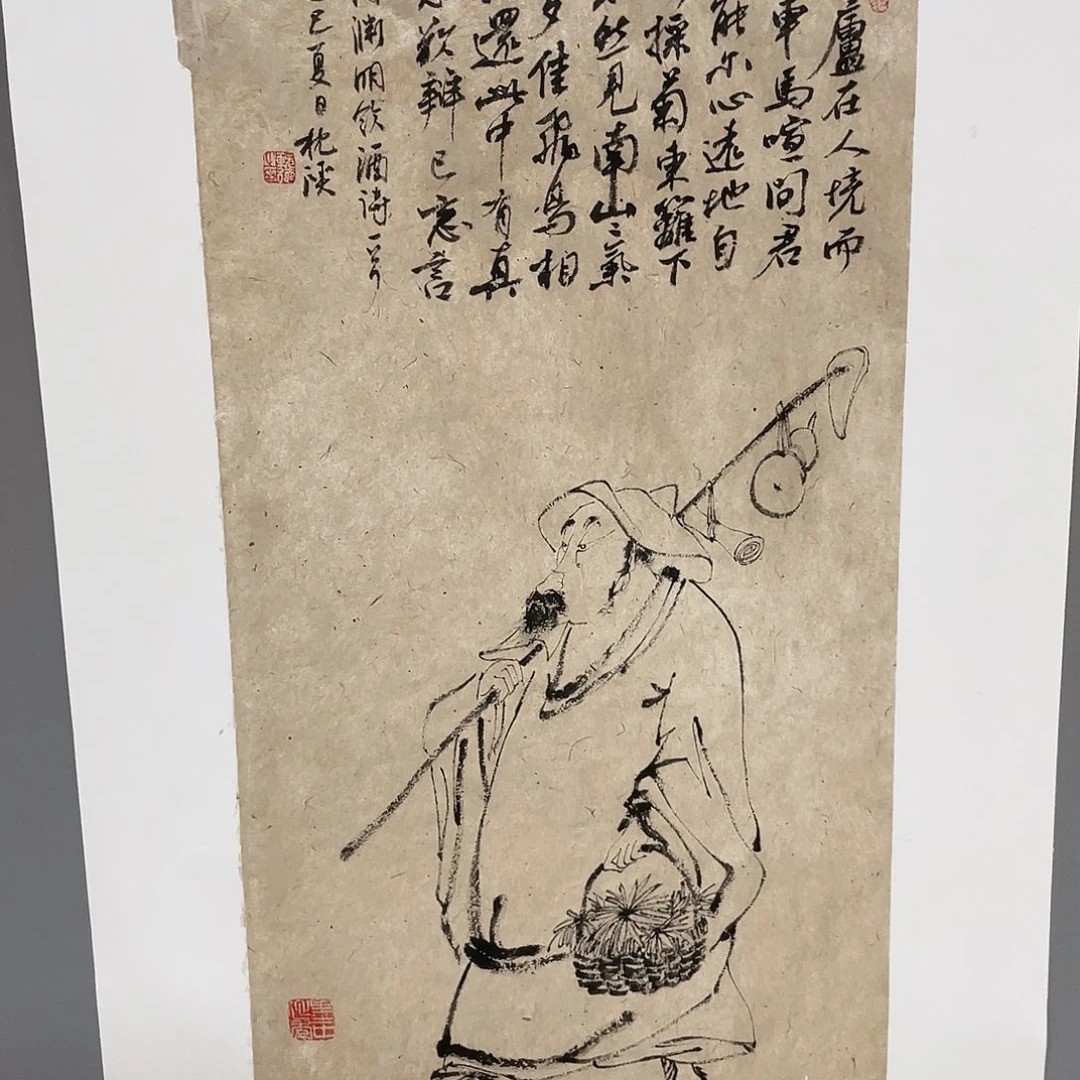 廬在人境而
車馬喧問君
能尔心遠地自
採菊東籬下
然見南山〻氣
夕佳飛鳥相
還此中有真
欲辨已忘言
淵明飲酒詩一首
巳夏日枕溪